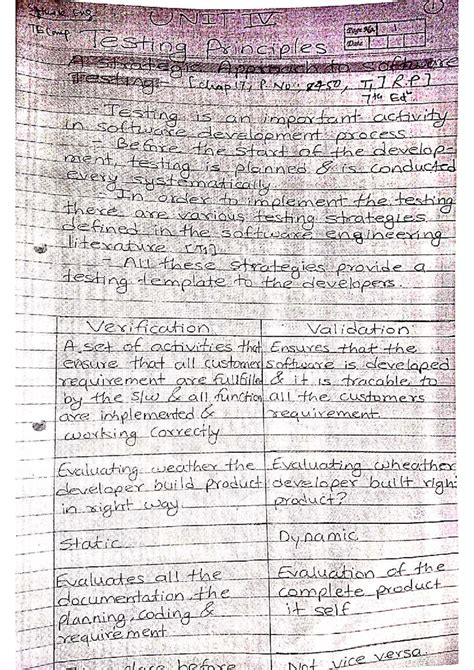 UNIT IV
Testing Principles
Page No. 1
Date
A Strategic Approach to Software
Testing [chap 17, P. No. 450, T1] R.P]
7th Ed
Testing is an important activity
in software development process.
- Before the start of the develop-
ment, testing is planned & is conducted
every systematically
- In order to implement the testing
there are various testing strategies
defined in the software engineering
literature [T1]
- All these strategies provide a
testing template to the developers.
Verification
Validation
A set of activities that
ensure that all customer
requirement are fullfilled
by the S/W & all function
are implemented &
working correctly
Ensures that the
software is developed
& it is tracable to
all the customers
requirement.
Evaluating weather the
developer build product
in right way
Evaluating wheather
developer built right
product?
Static
Dynamic
Evaluates all the
documentation, the
planning, coding &
requirement
Evaluation of the
complete product
it self
place before
Not vice versa